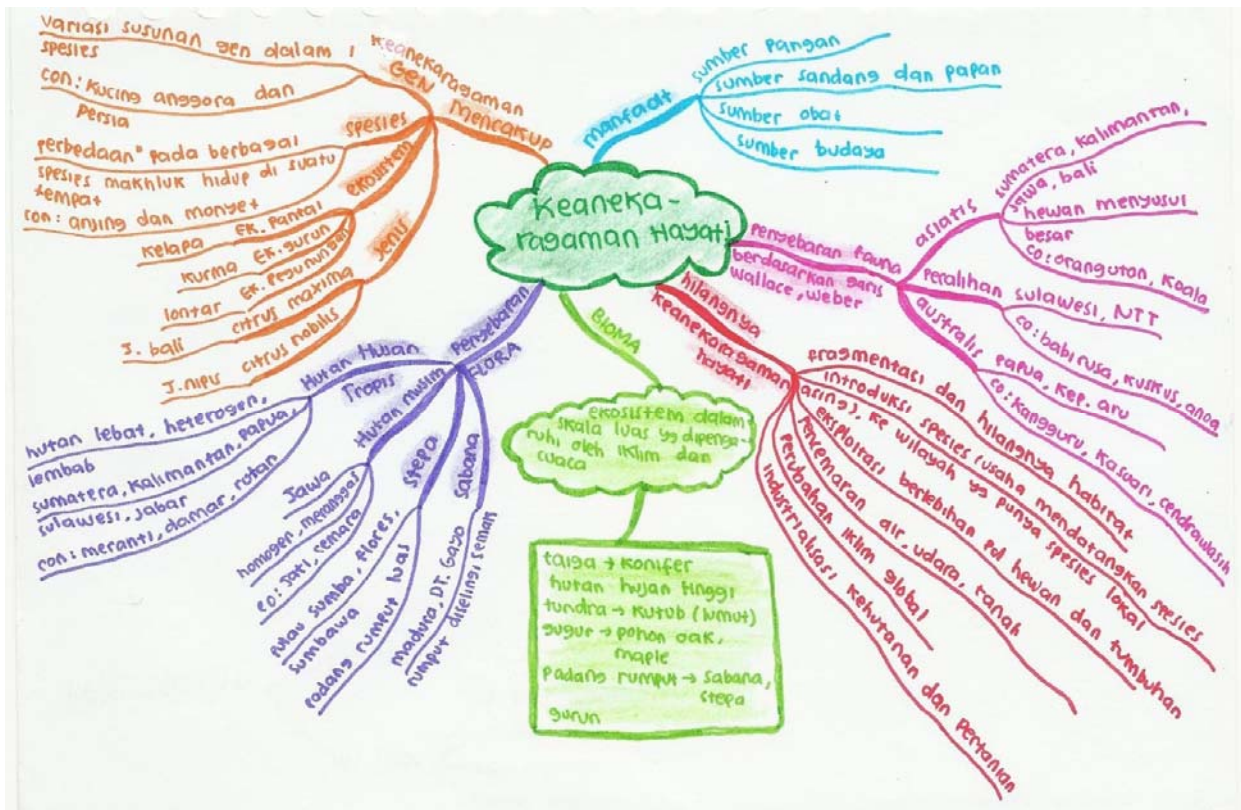 Keaneka-
ragaman Hayati
Keanekaragaman
GEN
mencakup
variasi susunan gen dalam 1
spesies
con: kucing anggora dan
Persia
spesies
perbedaan" pada berbagai
spesies makhluk hidup di suatu
tempat
con: anjing dan monyet
ekosistem
kelapa Ek. Pantai
kurma Ek. gurun
lontar Ek. Pegunungan
jenis
J. bali citrus maxima
J. nipis citrus nobilis
manfaat
sumber pangan
sumber sandang dan papan
sumber obat
sumber budaya
Penyebaran fauna
berdasarkan garis
wallace, weber
asiatis
sumatera, kalimantan,
jawa, bali
hewan menyusui
besar
co: orangutan, koala
Peralihan
sulawesi, NTT
co: babi rusa, kuskus, anoa
australis
papua, kep. aru
co: kangguru, kasuari, cendrawasih
hilangnya
keanekaragaman
hayati
fragmentasi dan hilangnya habitat
introduksi spesies (usaha mendatangkan spesies
asing), ke wilayah yg punya spesies lokal
eksploitasi berlebihan pd hewan dan tumbuhan
Pencemaran air, udara, tanah
perubahan iklim global
industrialisasi kehutanan dan pertanian
BIOMA
ekosistem dalam
skala luas yg dipenga-
ruhi oleh iklim dan
cuaca
taiga → konifer
hutan hujan tinggi
tundra → kutub (lumut)
gugur → pohon oak,
maple
padang rumput → sabana,
stepa
gurun
Penyebaran
FLORA
Hutan Hujan
Tropis
hutan lebat, heterogen,
lembab
sumatera, kalimantan, papua,
sulawesi, jabar
con: meranti, damar, rotan
Hutan musim
Jawa
homogen, meranggas
co: jati, cemara
stepa
pulau sumba, flores,
sumbawa
padang rumput luas
sabana
madura, DT. Gayo
rumput diselingi semak